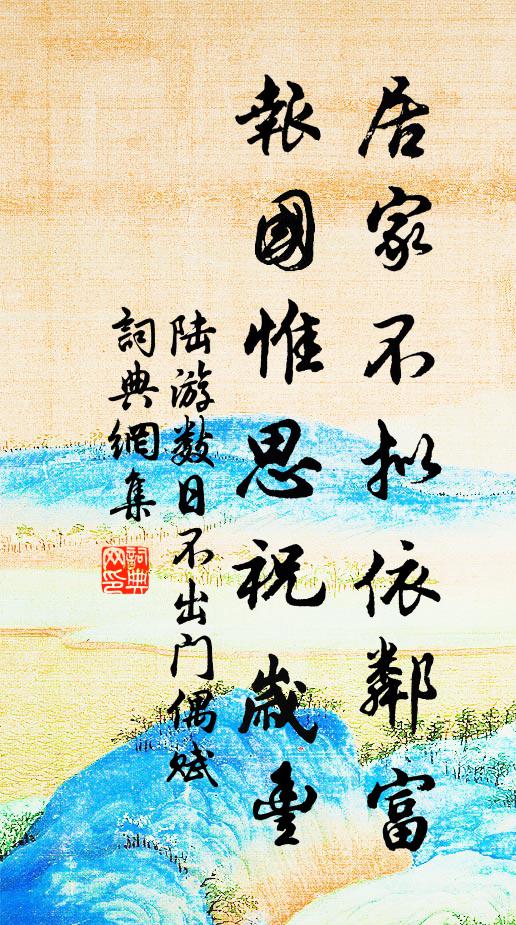 居家不拟依鄰富
報國惟思祝歲豊
陆游数日不出门偶赋
詞典網集
詞典
网印